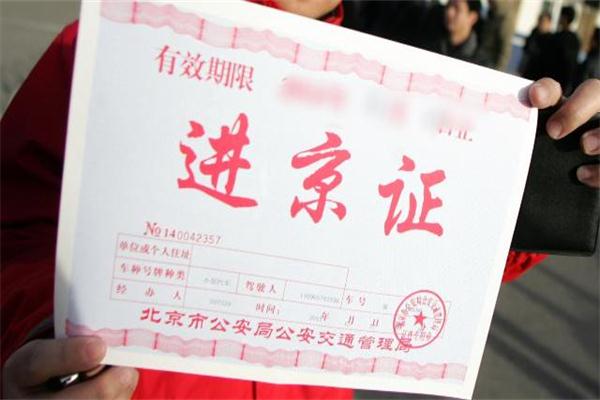 有效期限
进京证
No 140042357
单位或个人住址
车种号牌种类 小型汽车 驾驶人 车号
经办人 时间: 月 日
北京市公安局公安交通管理局